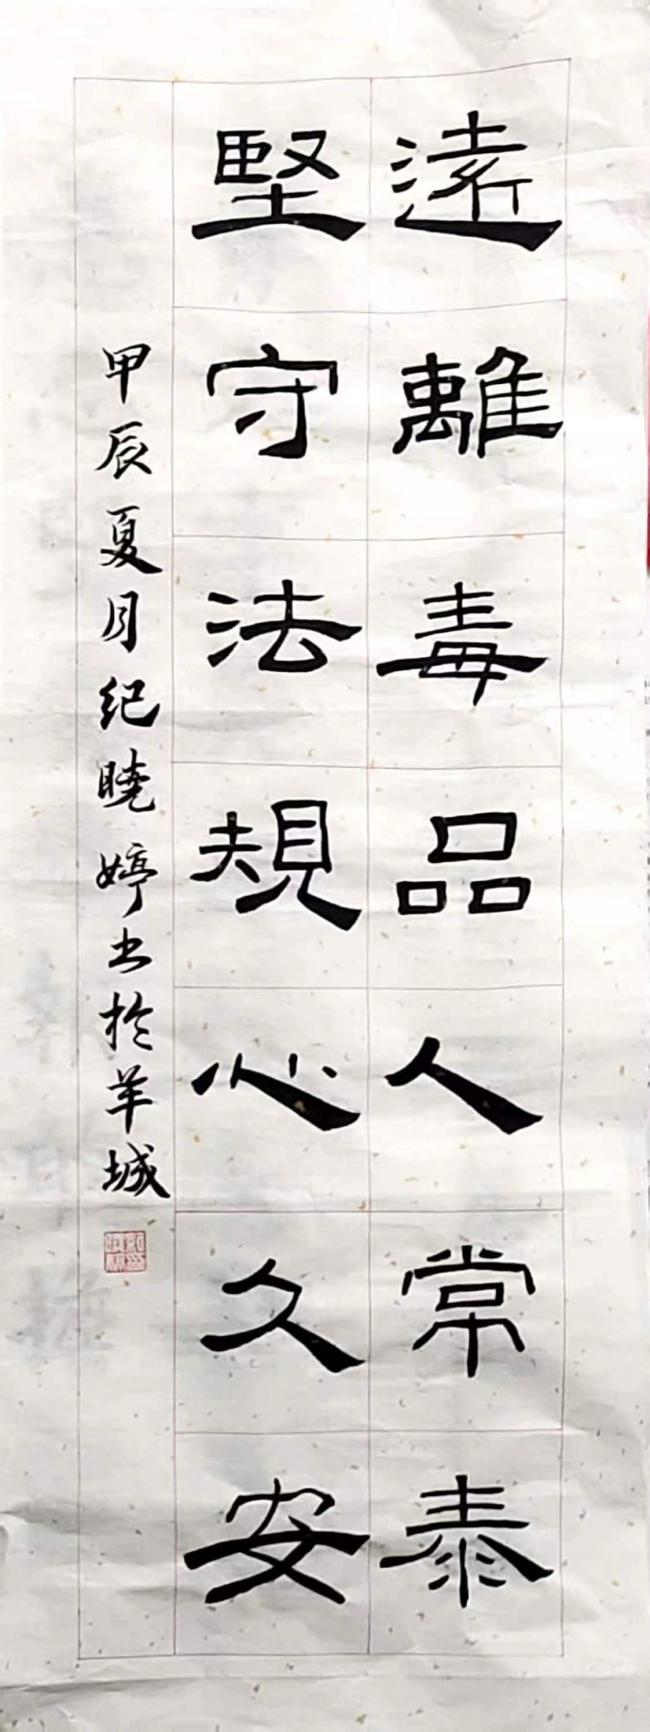 遠離毒品人常泰
堅守法規心久安
甲辰夏月纪曉婷书於羊城